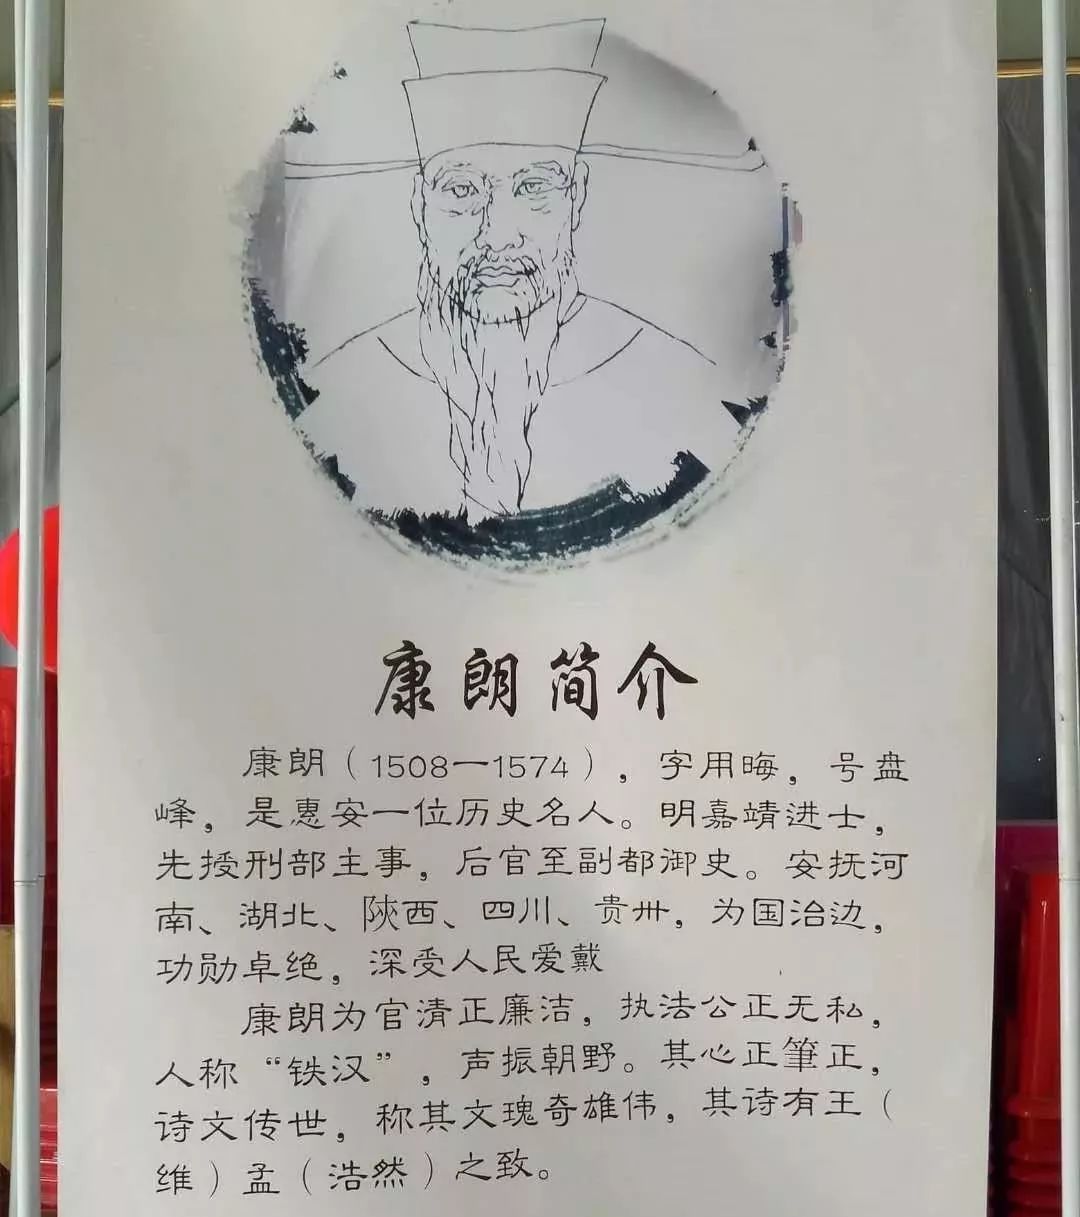 康朗简介
康朗（1508—1574），字用晦，号盘
峰，是惠安一位历史名人。明嘉靖进士，
先授刑部主事，后官至副都御史。安抚河
南、湖北、陝西、四川、贵州，为国治边，
功勋卓绝，深受人民爱戴
康朗为官清正廉洁，执法公正无私，
人称“铁汉”，声振朝野。其心正筆正，
诗文传世，称其文瑰奇雄伟，其诗有王（
维）孟（浩然）之致。